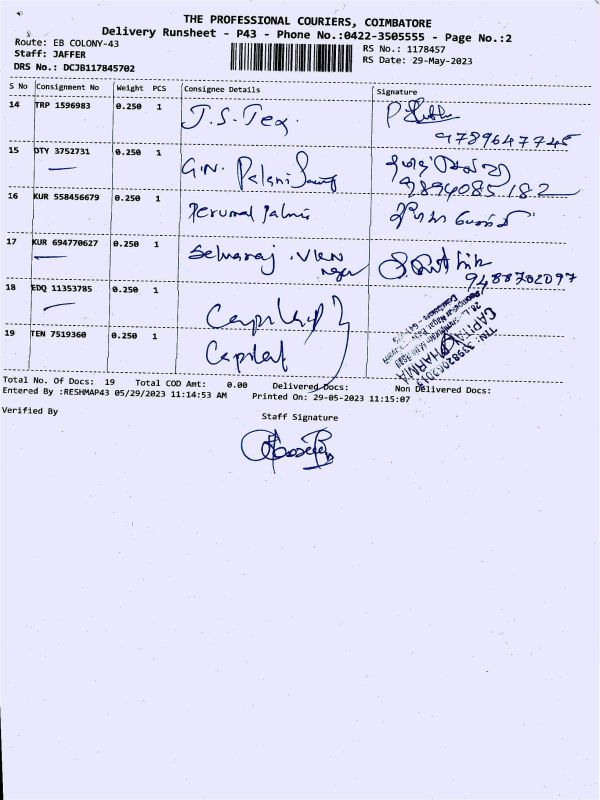 THE PROFESSIONAL COURIERS, COIMBATORE
Delivery Runsheet - P43 - Phone No.:0422-3505555 - Page No.:2
Route: EB COLONY-43
RS No.: 1178457
Staff: JAFFER
RS Date: 29-May-2023
DRS No.: DCJB117845702
S No Consignment No Weight PCS Consignee Details Signature
14 TRP 1596983 0.250 1 J.S. Tex.
9789647745
15 DTY 3752731 0.250 1 G.N. Palani
9894085182
16 KUR 558456679 0.250 1 Perumal
17 KUR 694770627 0.250 1 Selvaraj . VKN nagar
9488702097
18 EDQ 11353785 0.250 1
19 TEN 7519360 0.250 1 Capital
CAPITAL PHARMA
Total No. Of Docs: 19 Total COD Amt: 0.00 Delivered Docs: Non Delivered Docs:
Entered By :RESHMAP43 05/29/2023 11:14:53 AM Printed On: 29-05-2023 11:15:07
Verified By
Staff Signature